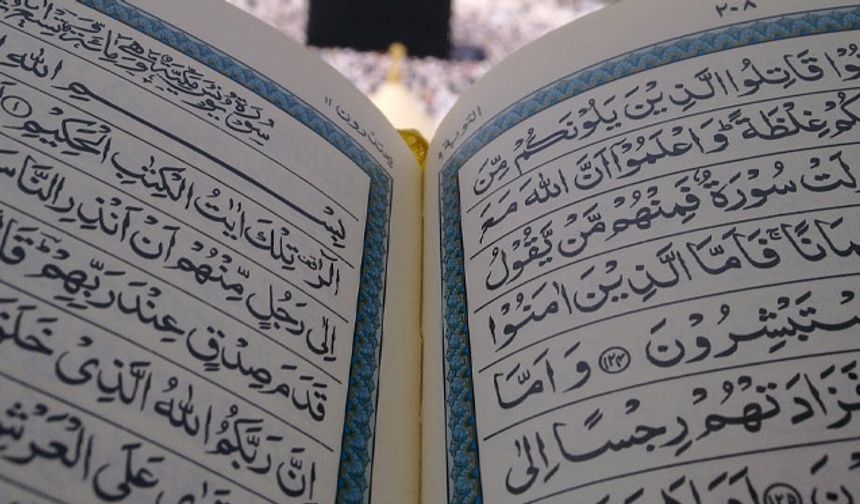 ٢٠٨
التوبة ٩
وْا قَاتِلُوا الَّذِيْنَ يَلُوْنَكُمْ مِّنَ
كُمْ غِلْظَةً ؕ وَ اعْلَمُوْۤا اَنَّ اللّٰهَ مَعَ
لَتْ سُوْرَةٌ فَمِنْهُمْ مَّنْ يَّقُوْلُ
مَانًا ۚ فَاَمَّا الَّذِيْنَ اٰمَنُوْا
سْتَبْشِرُوْنَ ﴿١٢٤﴾ وَ اَمَّا
فَزَادَتْهُمْ رِجْسًا اِلٰى
يعتذرون ١١
سُوْرَةُ يُوْنُسَ مَكِّيَّةٌ
بِسْمِ اللّٰهِ
الٓرٰ ۫ تِلْكَ اٰيٰتُ الْكِتٰبِ الْحَكِيْمِ ﴿١﴾
اِلٰى رَجُلٍ مِّنْهُمْ اَنْ اَنْذِرِ النَّاسَ
قَدَمَ صِدْقٍ عِنْدَ رَبِّهِمْ ؕ قَا
اِنَّ رَبَّكُمُ اللّٰهُ الَّذِيْ خَلَقَ
عَلَى الْعَرْشِ